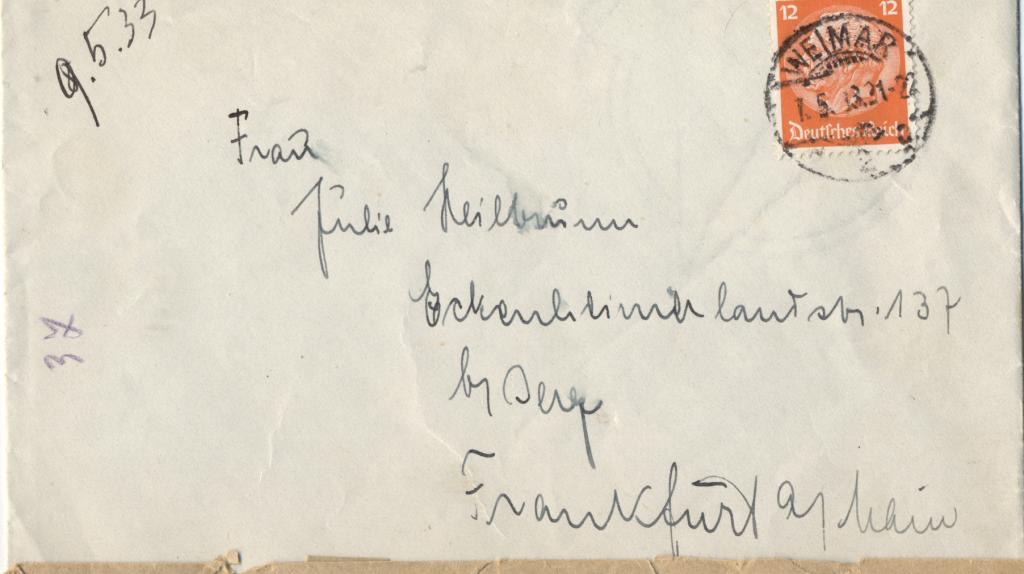 9.5.33
12 12
WEIMAR
5.33.21-22
Deutsches Reich
2
Frau
Julie Heilbrunn
Eckenheimerlandstr. 137
b/ Berg
Frankfurt a/ Main
37